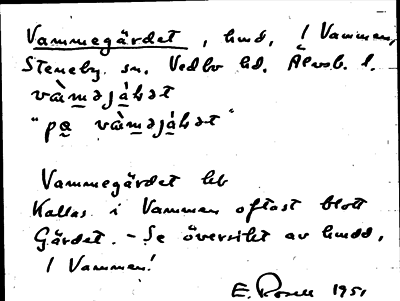 Vammegärdet, hmd, / Vammen,
Steneby sn. Vedbo hd. Älvsb. l.
vàməjáḷət
"pa vàməjáḷət"
Vammegärdet
Kallas i Vammen oftast blott
Gärdet. - Se översikt av hmdd,
/ Vammen!
E. Rosell 1951